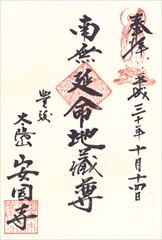 奉拝
平成三十年十月十四日
南無延命地蔵尊
豊後
太陽山
安国寺